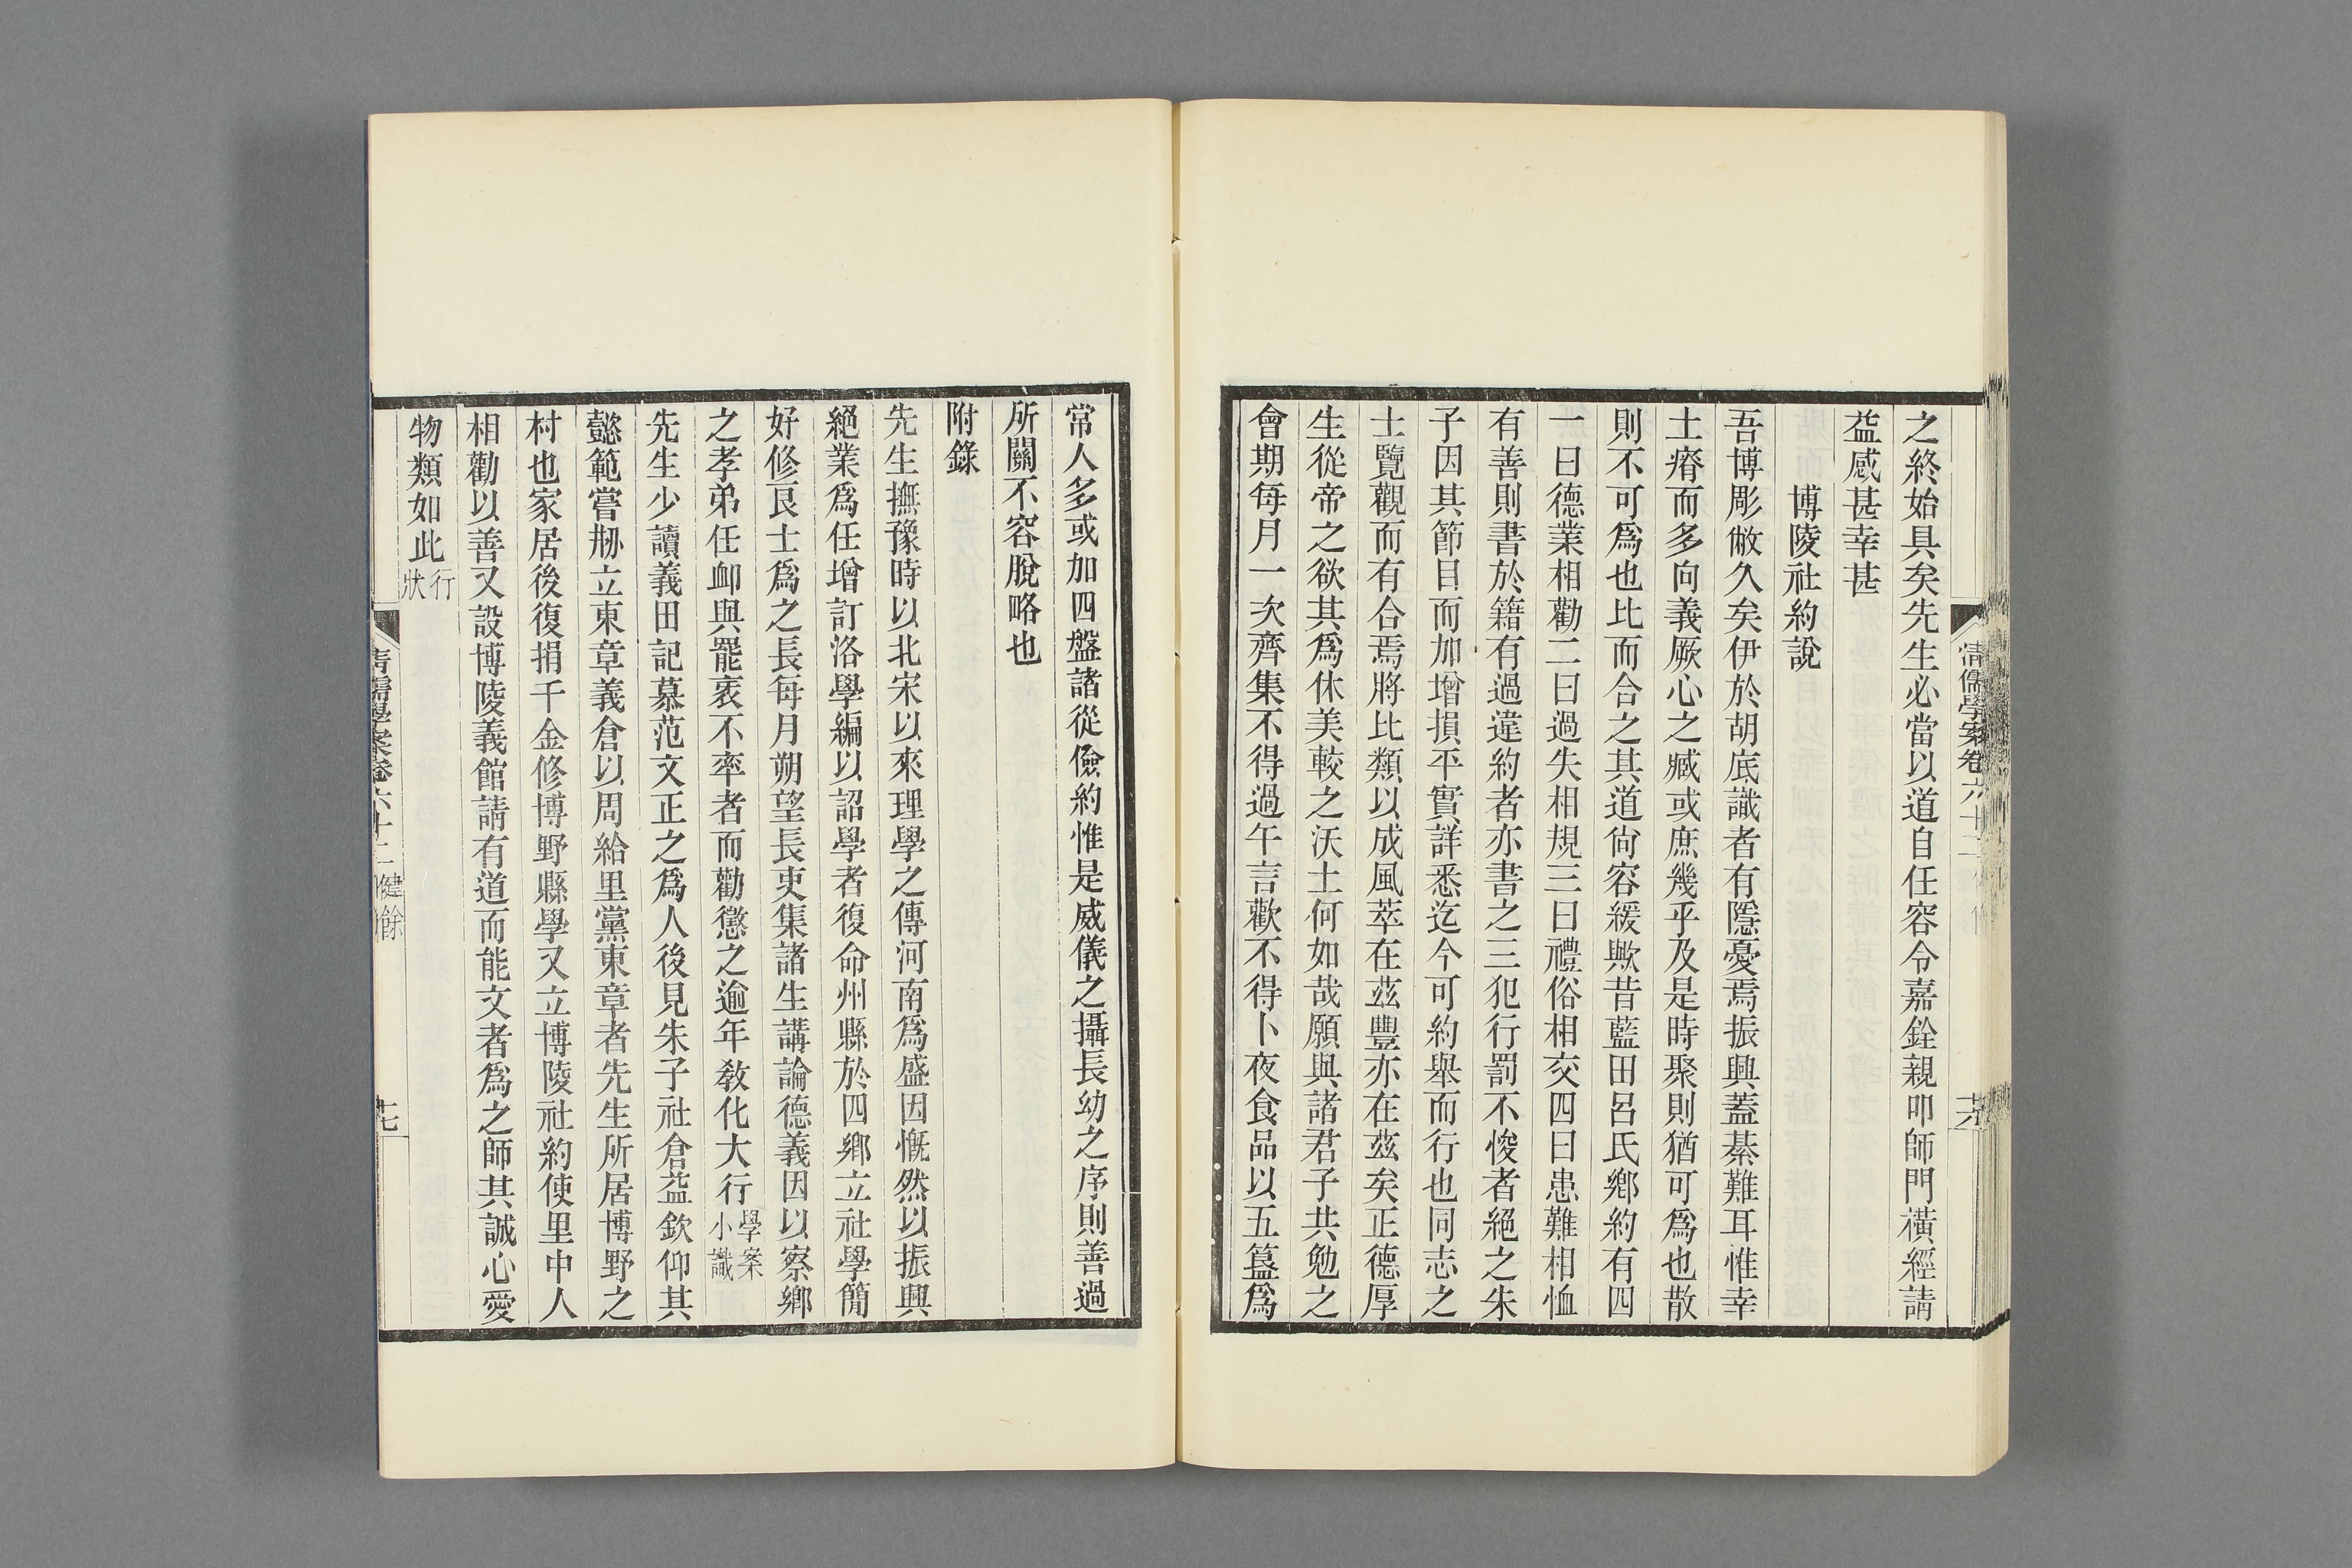 清儒學案卷六十二
之終始具矣先生必當以道自任容令嘉銓親叩師門橫經請
益感甚幸甚
博陵社約說
吾博彫敝久矣伊於胡底識者有隱憂焉振興蓋綦難耳惟幸
土瘠而多向義厥心之臧或庶幾乎及是時聚則猶可爲也散
則不可爲也比而合之其道尙容緩歟昔藍田呂氏鄉約有四
一曰德業相勸二曰過失相規三曰禮俗相交四曰患難相恤
有善則書於籍有過違約者亦書之三犯行罰不悛者絕之朱
子因其節目而加增損平實詳悉迄今可約舉而行也同志之
士覽觀而有合焉將比類以成風萃在茲豐亦在茲矣正德厚
生從帝之欲其爲休美較之沃土何如哉願與諸君子共勉之
會期每月一次齊集不得過午言歡不得卜夜食品以五簋爲
常人多或加四盤諸從儉約惟是威儀之攝長幼之序則善過
所關不容脫略也
附錄
先生撫豫時以北宋以來理學之傳河南爲盛因慨然以振興
絕業爲任增訂洛學編以詔學者復命州縣於四鄉立社學簡
好修艮士爲之長每月朔望長吏集諸生講論德義因以察鄉
之孝弟任卹與罷衺不率者而勸懲之逾年敎化大行學案小識
先生少讀義田記慕范文正之爲人後見朱子社倉益欽仰其
懿範嘗刱立東章義倉以周給里黨東章者先生所居博野之
村也家居後復捐千金修博野縣學又立博陵社約使里中人
相勸以善又設博陵義館請有道而能文者爲之師其誠心愛
物類如此行狀
清儒學案卷六十二 健餘
十七